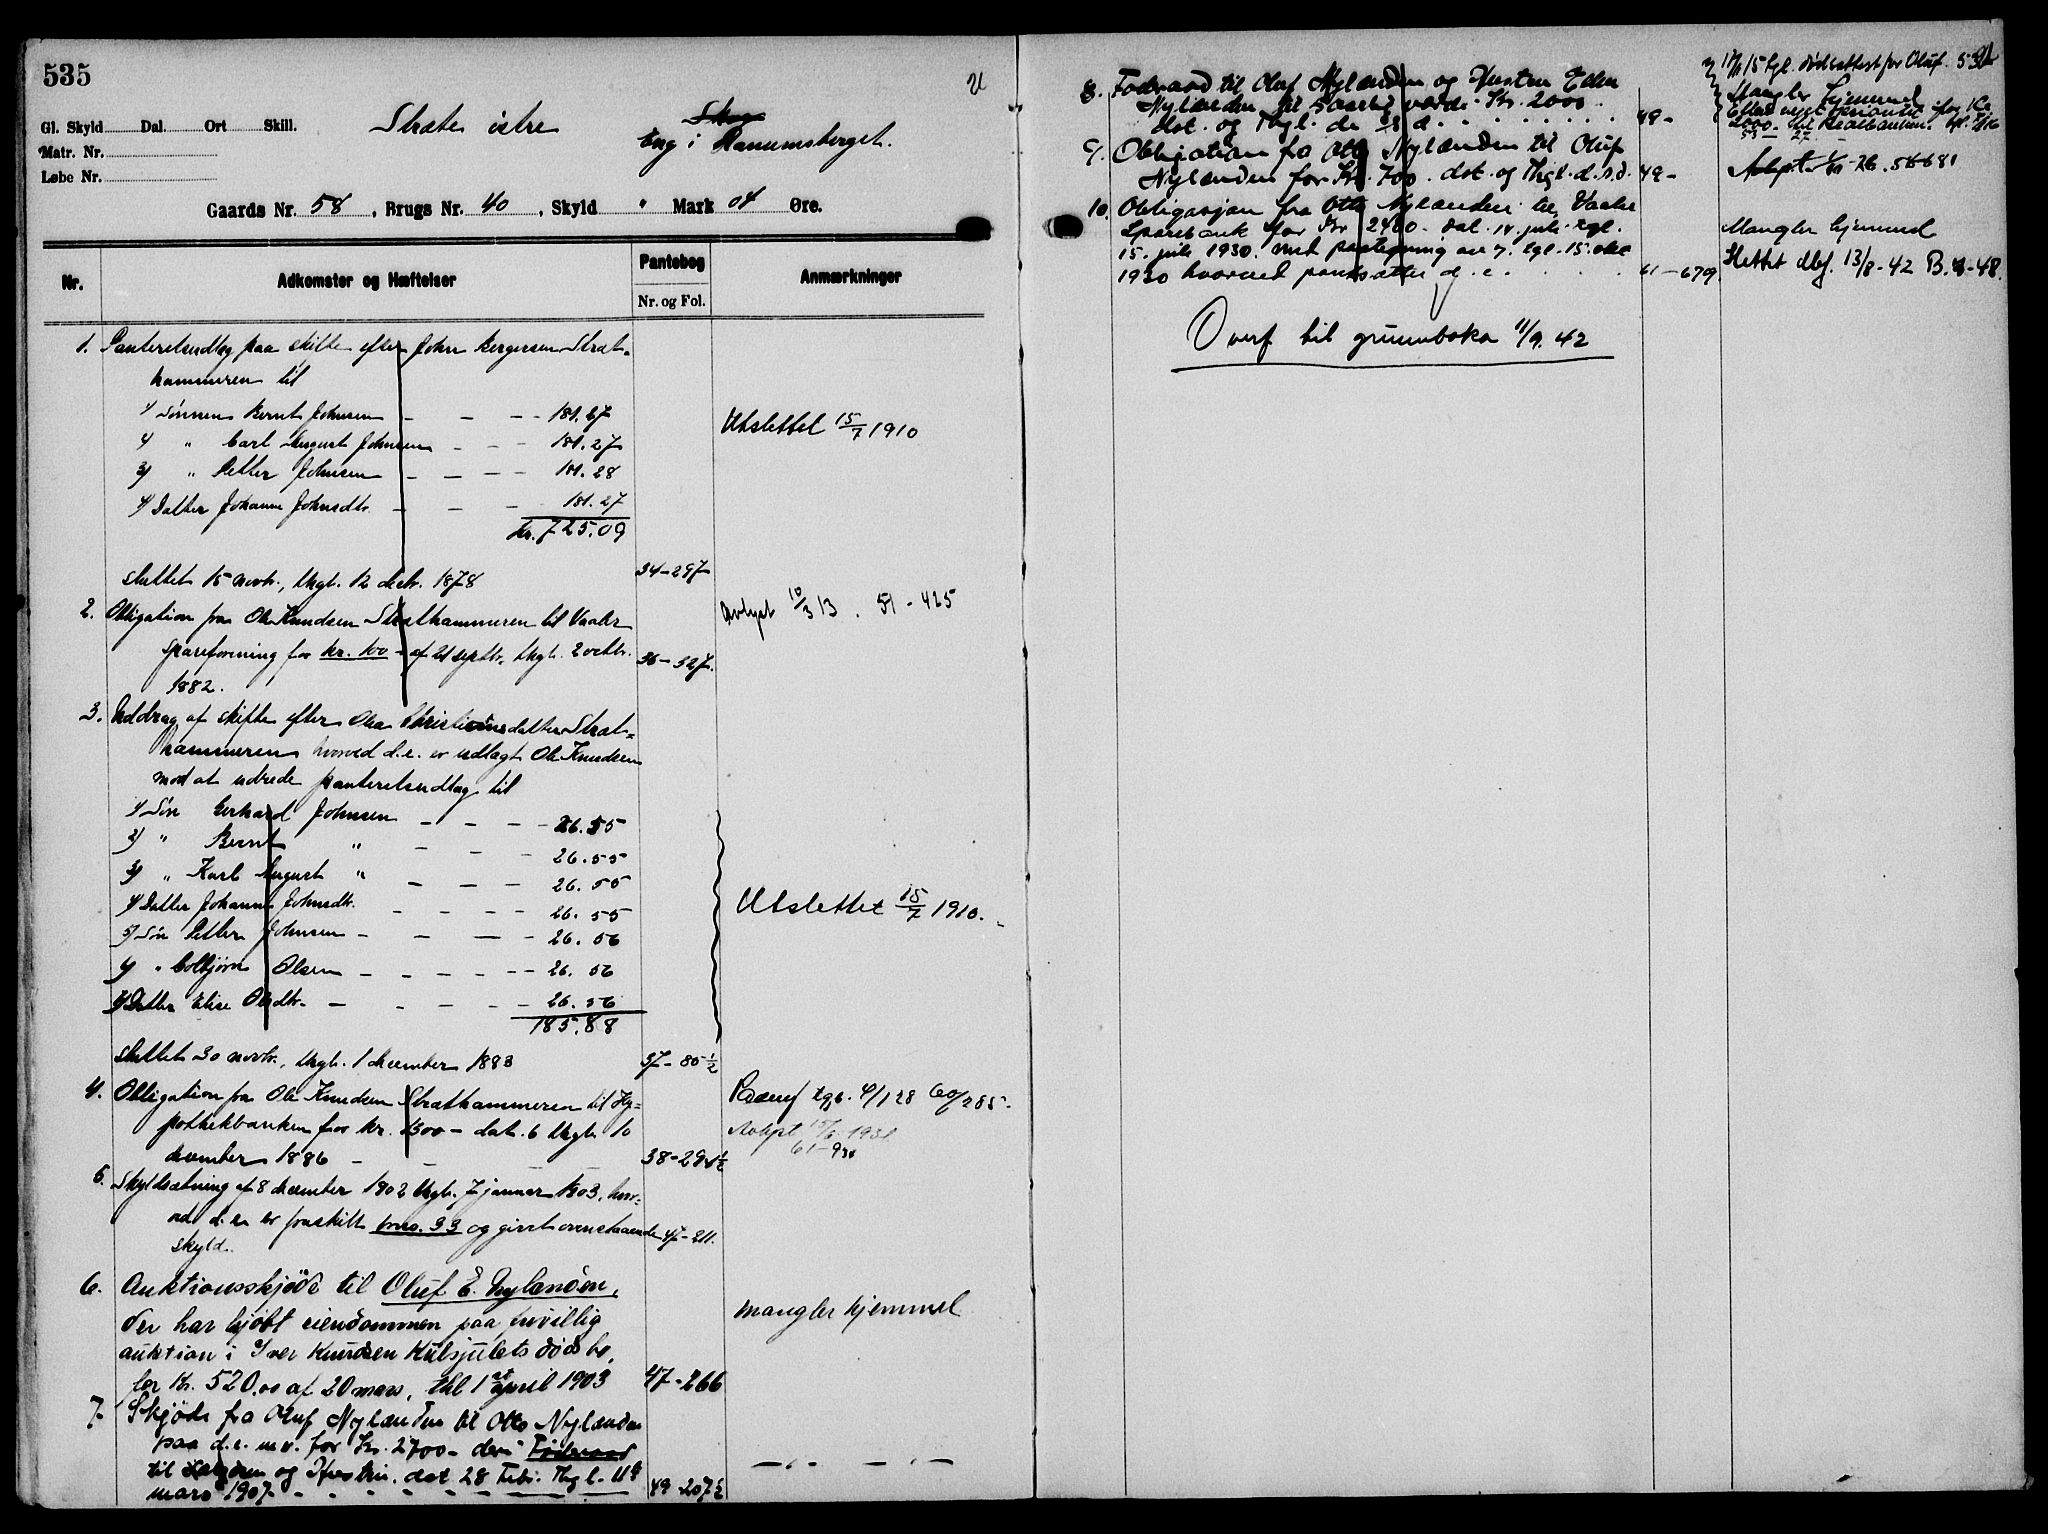 535
21
Gl. Skyld Dal. Ort Skill.
Matr. Nr.
Løbe Nr.
Stræte østre
Skog
Eng i Ranumsberget.
Gaards Nr. 58, Brugs Nr. 40, Skyld " Mark 04 Øre.
Nr. Adkomster og Hæftelser Pantebog Nr. og Fol. Anmærkninger
1. Panteretsudlæg paa skifte efter John Bergersen Stræt-
hammeren til
1) Sønnen Bernt Johnsen — — — 181.27
2) " Carl August Johnsen — — 181.27
3) " Petter Johnsen — — — 181.28
4) Datter Johanne Johnsdtr. — — — 181.27
kr. 725.09
Utslettet 15/7 1910
sluttet 15 novbr., thgl. 12 decbr. 1878 34-297
2. Obligation fra Ole Knudsen Stræthammeren til Vaaler
spareforening for kr. 100 – af 21 septbr. thgl. 2 octbr. 36-327.
1882.
Avlyst 10/3 13. 51-425
3. Uddrag af skifte efter Olea Christiansdatter Stræt-
hammeren hvorved d.e. er udlagt Ole Knudsen
mod at udrede panteretsudlæg til
1) Søn Gerhard Johnsen — — — 26.55
2) " Bernt " — — — 26.55
3) " Karl August " — — — 26.55
4) Datter Johanne Johnsdtr. — — — 26.55
5) Søn Petter Johnsen — — — 26.56
6) " Colbjørn Olsen — — — — 26.56
7) Datter Elise Olsdtr. — — — 26.56
185.88
Utslettet 15/7 1910.
sluttet 30 novbr., thgl. 1 december 1883 37-80½
4. Obligation fra Ole Knudsen Stræthammeren til Hy-
pothekbanken for kr. 1300 – dat. 6 thgl. 10
december 1886 — — — 38-291½
tgl. 4/1 28 60/285.
Avlyst 15/6 1931
61-930
5. Skyldsætning af 8 december 1902 thgl. 7 januar 1903, hvor-
ved d.e. er fraskilt brno. 33 og givet ovenstaaende 47-211.
skyld.
6. Auktionsskjøde til Oluf E. Nylænden,
der har kjøbt eiendommen paa frivillig
auktion i Iver Knudsen Kulsjulets dødsbo,
for kr. 520.00 af 20 mars, thl 1st april 1903 47-266
mangler hjemmel
7. Skjøde fra Oluf Nylænden til Otto Nylænden
paa d.e. m.v. for Kr. 2700 – deri Føderaad
til Sælgeren og Hustru. dat 28 Febr. Thgl. 11te
mars 1907 - - - - 49-207½
— " — — " —
8. Føderaad til Oluf Nylænden og Hustru Ellen
Nylænden til 5 aarlig værdi Kr. 2000
dat. og Thgl. d. s. d. 49-
17/ 15 tgl. dødsattest for Oluf. 53
Mangler hjemmel
9. Obligation fra Otto Nylænden til Oluf
Nylænden for Kr. 700. dat. og Thgl. d. s. d. 49-
Avlyst 26. 56681
10. Obligasjon fra Otto Nylænden til Vaaler
Sparebank for Kr 2400. dat. 14. juli tgl.
15. juli 1930. med paategning av 7. tgl. 15. okt
1930 hvorved pantsættes d.e. 61-679
Mangler hjemmel
Slettet dbj. 13/8-42 B. 48.
Overf til grunnboka 11/9. 42